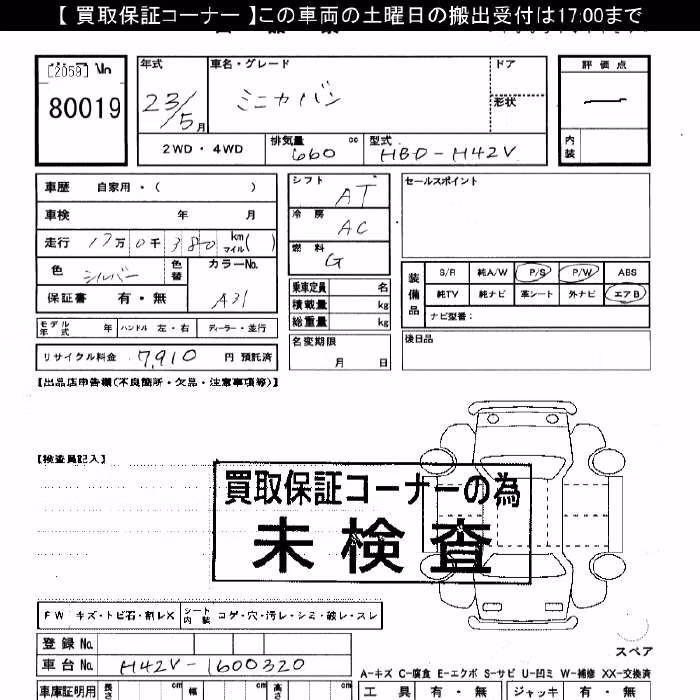 【 買取保証コーナー 】この車両の土曜日の搬出受付は17:00まで
[2059] No
80019
年式
23/5月
車名・グレード
ミニカバン
ドア
形状
評価点
内装
2WD・4WD
排気量 cc
660
型式
HBD-H42V
車歴 自家用・( )
車検 年 月
走行 17万 0千 380 km マイル( )
色 シルバー 色替
カラーNo. A31
保証書 有・無
シフト AT
冷房 AC
燃料 G
乗車定員 名
積載量 kg
総重量 kg
セールスポイント
装備品
S/R 純A/W P/S P/W ABS
純TV 純ナビ 革シート 外ナビ エアB
ナビ型番:
モデル年式 年 ハンドル 左・右 ディーラー・並行
リサイクル料金 7,910 円 預託済
名変期限 月 日
後日品
【出品店申告欄(不良箇所・欠品・注意事項等)】
【検査員記入】
買取保証コーナーの為
未検査
FW キズ・トビ石・割レX シート内装 コゲ・穴・汚レ・シミ・破レ・スレ
登録No.
車台No. H42V-1600320
スペア
A-キズ C-腐食 E-エクボ S-サビ U-凹ミ W-補修 XX-交換済
車庫証明用 長さ cm 幅 cm 高さ cm
工具 有・無 ジャッキ 有・無